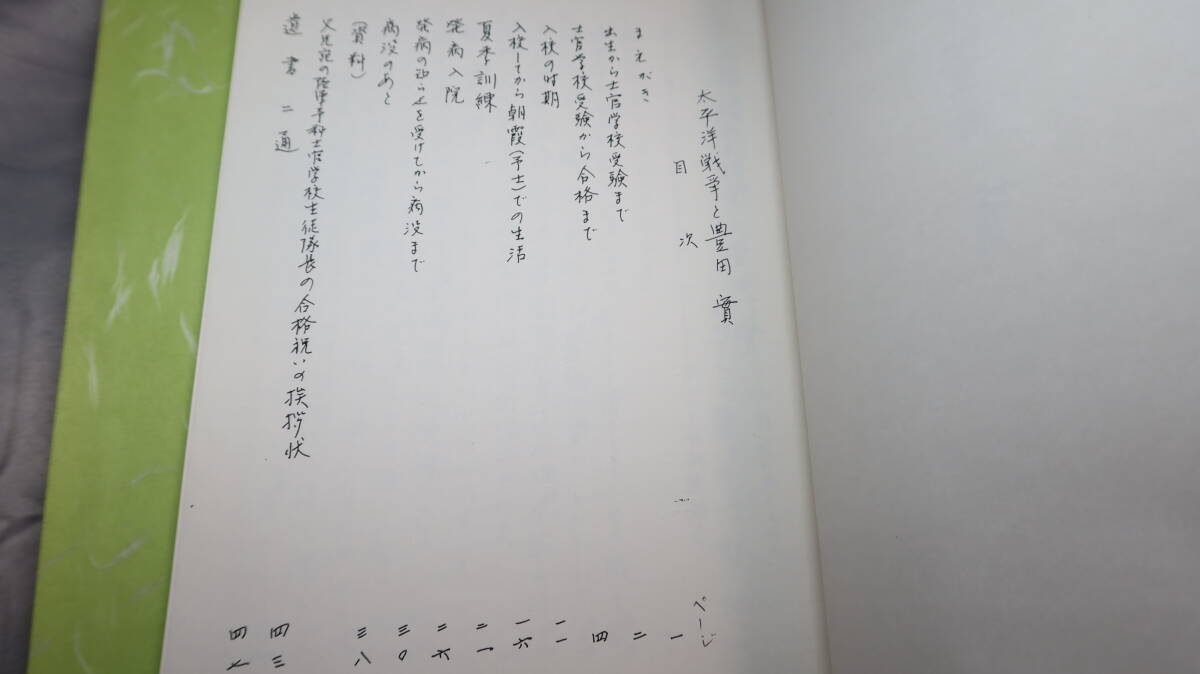 太平洋戦争と豊田 實
目 次
ページ
まえがき 一
出生から士官学校受験まで 二
士官学校受験から合格まで 四
入校の時期 一一
入校してから朝霞(予士)での生活 一六
夏季訓練 二一
発病入院 二六
発病の知らせを受けてから病没まで 三〇
病没のあと 三八
(資料)
父兄宛の陸軍予科士官学校生徒隊長の合格祝いの挨拶状 四三
遺書 二通 四七